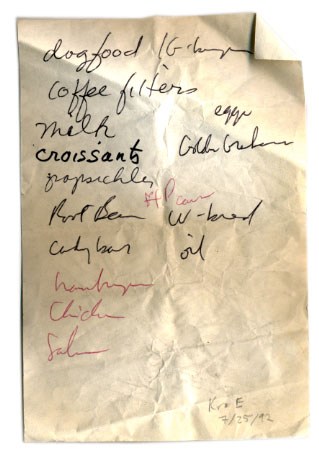 dogfood / G-burger
coffee filters
eggs
milk
croissants Golden Grahams
popsickles
Root Beer W-bread
candy bars oil
hamburger
Chicken
Salmon
7/25/92